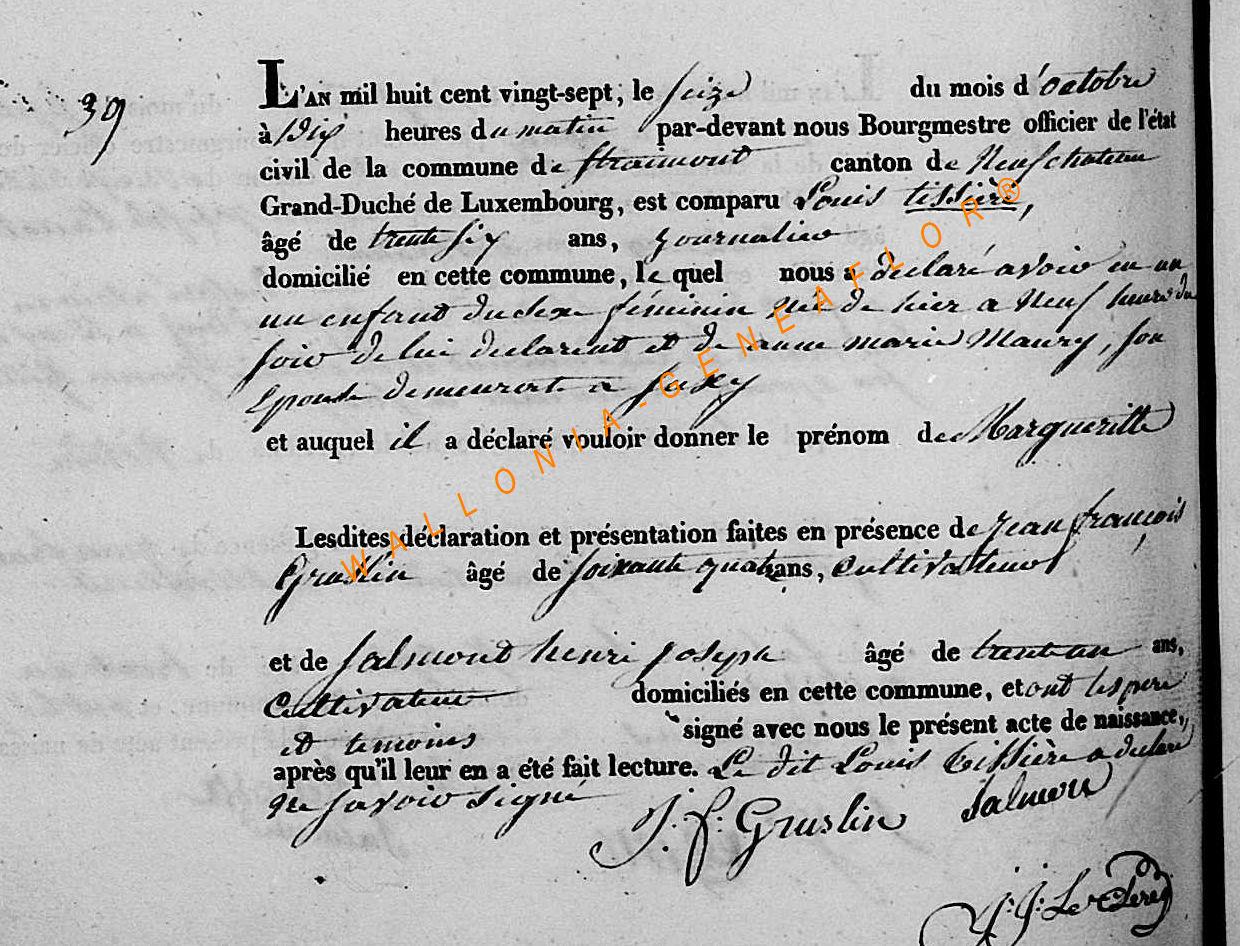 39
L'AN mil huit cent vingt-sept, le seize du mois d'octobre
à dix heures du matin par-devant nous Bourgmestre officier de l'état
civil de la commune de Straimont canton de Neufchateau
Grand-Duché de Luxembourg, est comparu Louis tissière,
âgé de trente six ans, journalier
domicilié en cette commune, le quel nous a déclaré avoir eu un
un enfant du sexe féminin née de hier a Neuf heures du
soir de lui declarent et de anne marie Maury, son
Epouse demeurente a suxy
et auquel il a déclaré vouloir donner le prénom de Margueritte
Lesdites déclaration et présentation faites en présence de jean françois
Gruslin âgé de soixante quatre ans, cultivateur
et de salmond henri joseph âgé de trente un ans,
cultivateur domiciliés en cette commune, et ont les pere
et temoins signé avec nous le présent acte de naissance,
après qu'il leur en a été fait lecture. Le dit Louis Tissière a declaré
ne savoir signé
J: f: Gruslin salmon
J: J: Le Clere
WALLONIA-GENEAFLOR®